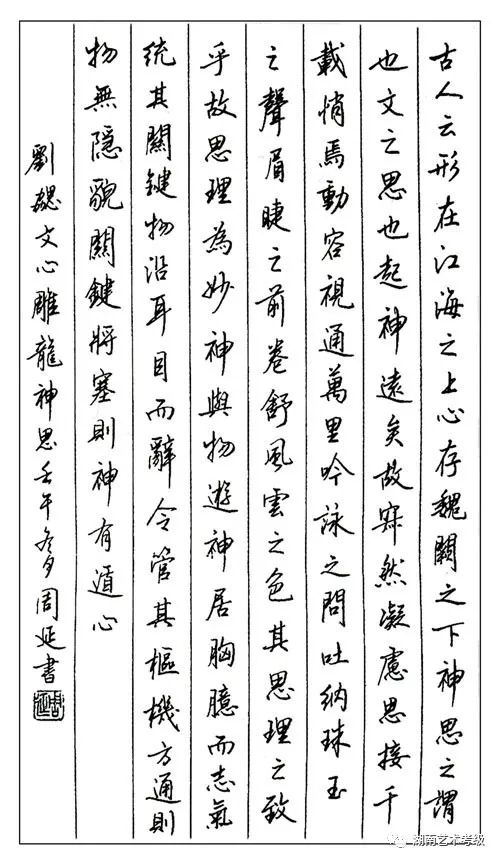 古人云形在江海之上心存魏闕之下神思之謂
也文之思也起神遠矣故寂然凝慮思接千
載悄焉動容視通萬里吟詠之間吐納珠玉
之聲眉睫之前卷舒風雲之色其思理之致
乎故思理為妙神與物遊神居胸臆而志氣
統其關鍵物沿耳目而辭令管其樞機方通則
物無隱貌關鍵將塞則神有遁心
劉勰文心雕龍神思壬午冬月周延書
湖南艺术考级